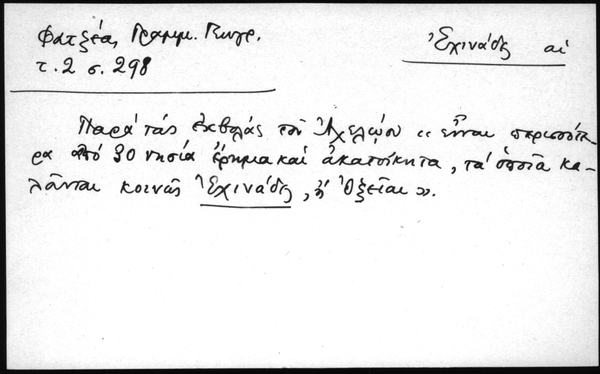 Φατζέας, Γραμμ. Γεωγρ.
τ. 2 σ. 298
Ἐχινάδες αἱ
Παρά τάς ἐκβολάς τοῦ Ἀχελῴου «εἶναι περισσότε-
ρα ἀπό 30 νησία ἔρημα καί ἀκατοίκητα, τά ὁποῖα κα-
λοῦνται κοινῶς Ἐχινάδες, ἤ Ὀξεῖαι».